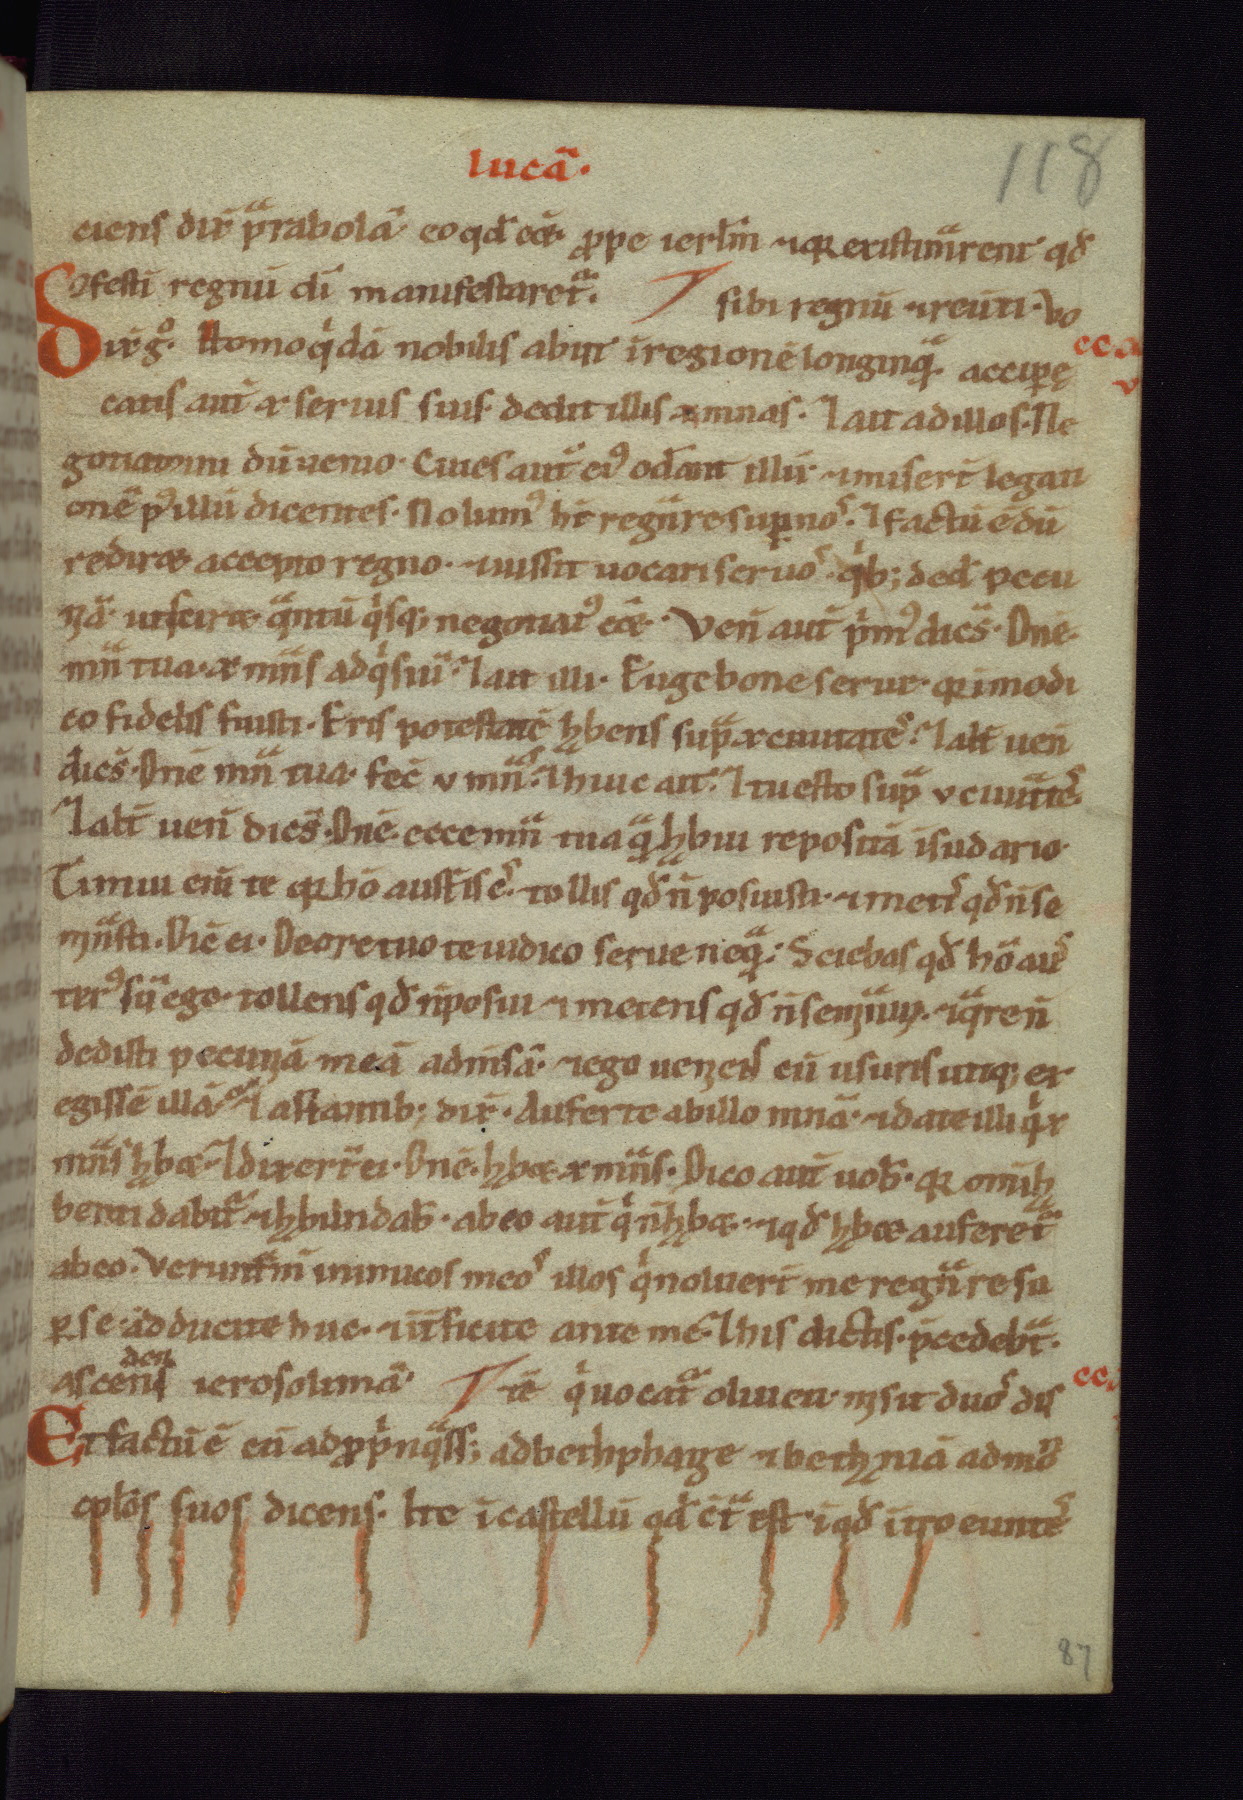 lucā·
118
ciens dix̄ pͣrabolā eo qd̄ eēt ꝓpe ierl̄m ⁊ qꝛ existimͣrent qđ
ꝯfesti regnū dī manifestaretͣ· sibi regnū ⁊ reūti· Vo
Dix̄ gͦ· Homo qͥdā nobilis abiit ī regionē longinqͣ accipe
catis aut̄ x servis suis dedit illis x mnas· ⁊ ait ad illos· Ne
gotiamini dū uenio· Ciues aut̄ eiꝰ oderant illū· ⁊ miser̄t legati
onē pꝰ illū dicentes· Nolumꝰ hc̄ regnͣre sup nos· ⁊ factū ē dū
rediret accepto regno· ⁊ iussit uocari seruos qͥbꝫ ded̄ pecu
niā· ut sciret qͣntū qͥsqꝫ negotiatꝰ eēt· Ven̄ aut̄ pͥmꝰ dices· Dn̄e
mn̄ͣ tua x mn̄ͣs adqͥsiuͥ· ⁊ ait illi· Euge bone serue· qꝛ i modi
co fidelis fuisti· Eris potestatē hn̄bens supͣ x ciuitates· ⁊ alt̄ uen̄
dices· Dn̄e mn̄ͣ tua fec̄ v mn̄ͣs· ⁊ huic ait· ⁊ tu esto supͣ v ciuitͣtes·
⁊ alt̄ uen̄ dices· Dn̄e ecce mn̄ͣ tua qͣ hͣbui repositā ī sudario·
Timui em̄ te qꝛ hō aust̄is es· tollis qđ n̄ posuisti· ⁊ metis qđ n̄ se
minͣsti· Dic̄ ei· De ore tuo te iudico serue neqͣ· Sciebas qđ hō aus
terꝰ sū ego· tollens qđ n̄ posui ⁊ metens qđ n̄ seminͣui· ⁊ qͣre n̄
dedisti pecuniā meā ad mn̄sā· ⁊ ego ueniens cū usuris utiqꝫ ex
egissē illā· ⁊ astantibꝫ dix̄· Auferte ab illo mnā· ⁊ date illi qͥ x
mn̄ͣs hͣbet· ⁊ dixer̄t ei· Dn̄e hͣbet x mn̄ͣs· Dico aut̄ uob̄· qꝛ omī hͣ
benti dabitͣ· ⁊ hͣbundab̄· ab eo aut̄ qͥ n̄ hͣbet· ⁊ qđ hͣbet auferetͣ
ab eo· Veruntm̄ inimicos meos illos qͥ noluert̄ me regnͣre su
per se· adducite huc· ⁊ īt̄ficite ante me· ⁊ his dictis· p̄cedebͣt·
ascendens ierosolimā· tē qͥ uocatͣ oliueti· misit duos dis
Et factū ē cū adꝓpīnqͣssꝫ ad bethphage ⁊ bethaniā ad mōn
cplos suos dicens· Ite ī castellū qđ cͣt̄ est· ī qđ ītroeuntes
87